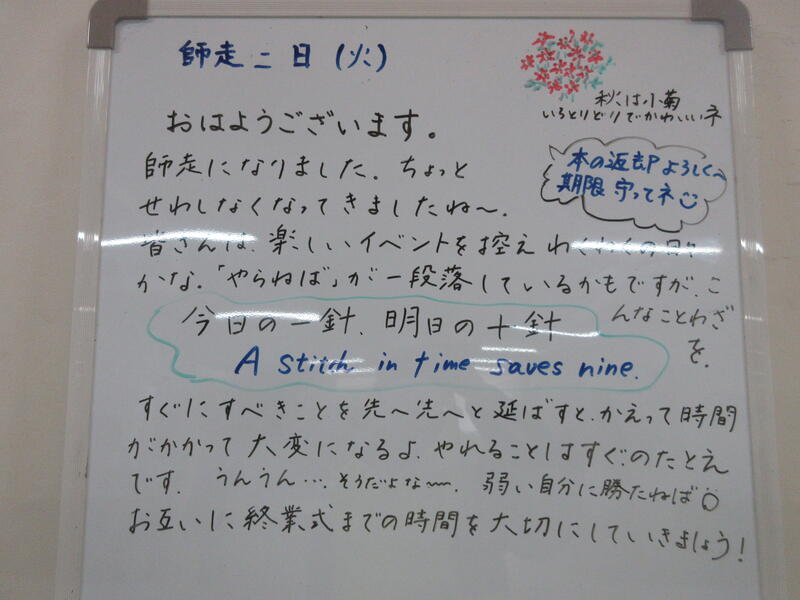 師走二日(火)
秋は小菊
いろとりどりでかわいいネ
おはようございます。
本の返却よろしく〜
期限守ってネ
師走になりました。ちょっと
せわしなくなってきましたね〜。
皆さんは、楽しいイベントを控えわくわくの日々
かな。「やらねば」が一段落しているかもですが、こ
んなことわざ
を。
今日の一針、明日の十針
A stitch in time saves nine.
すぐにすべきことを先へ先へと延ばすと、かえって時間
がかかって大変になるよ、やれることはすぐ、のたとえ
です。うんうん…そうだよな〜。弱い自分に勝たねば
お互いに終業式までの時間を大切にしていきましょう!